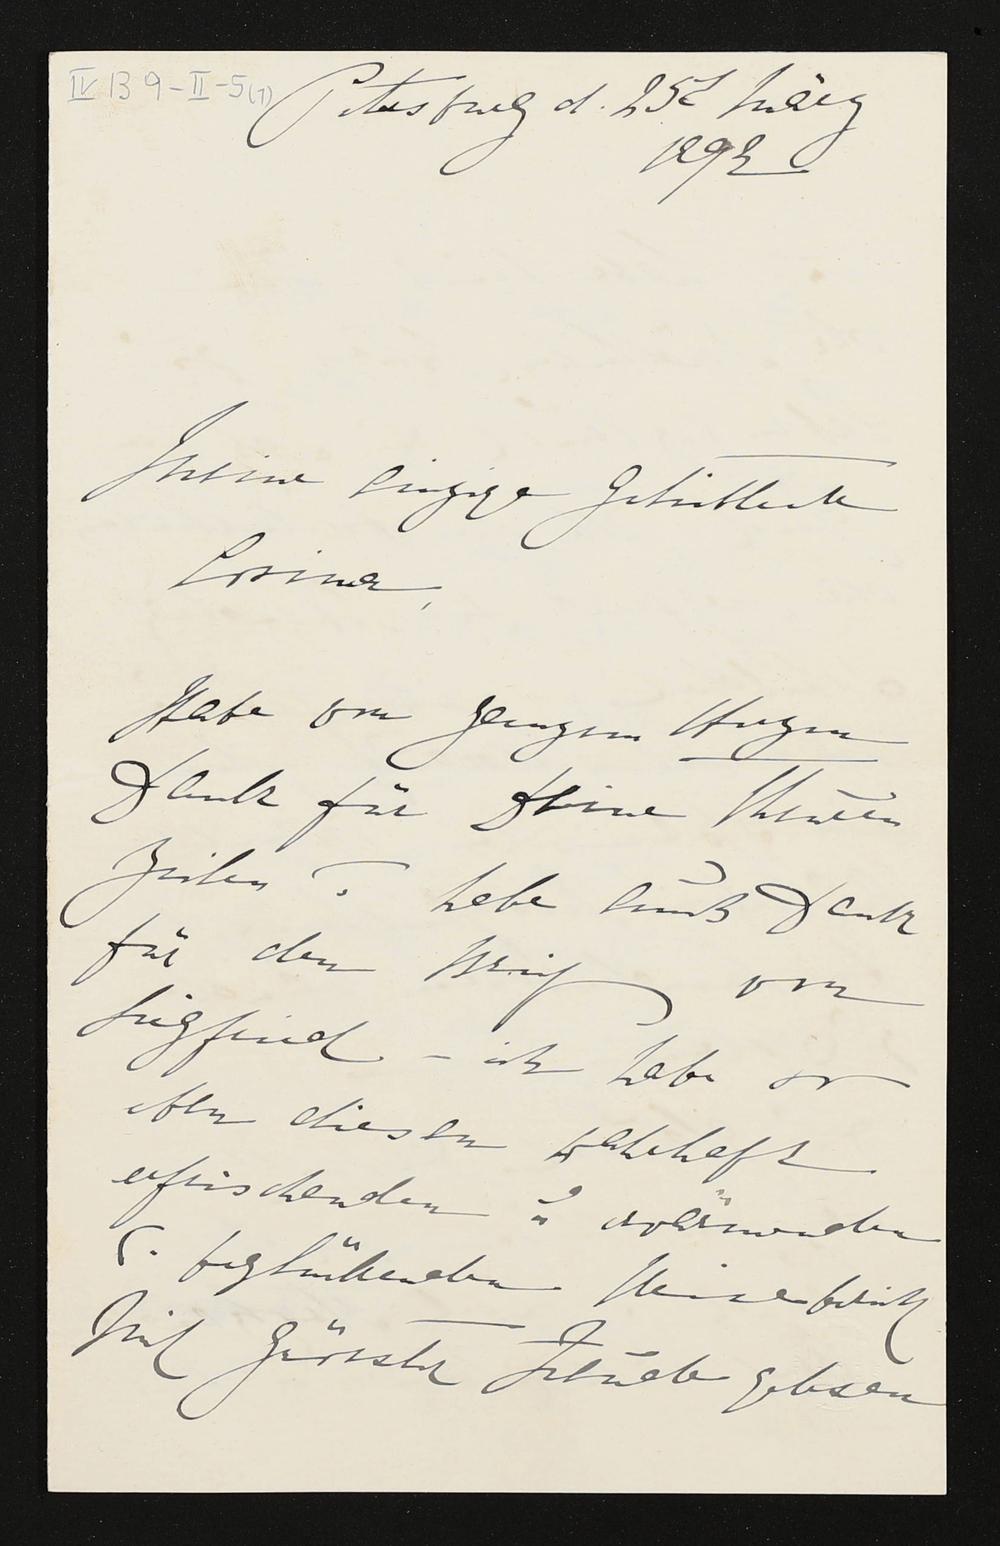 IV B 9-II-5(1)
Petersburg d. 25t März
1892
Meine Einzige Geliebteste
Cosima,
Habe von ganzem Herzen
Dank für Deine theuren
Zeilen u. habe auch Dank
für den Brief von
Siegfried – ich habe so
eben diesen wahrhaft
erfrischenden u. erwärmenden
u. beglückenden Reisebericht
mit größter Freude gelesen